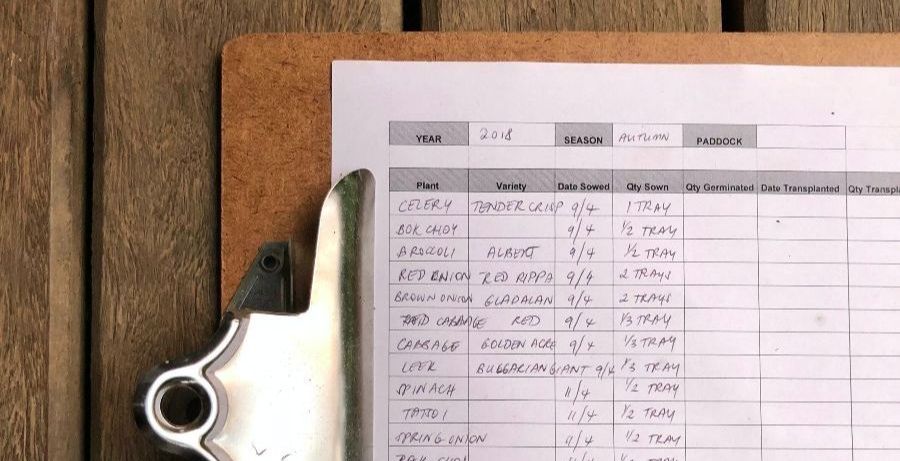 YEAR 2018 SEASON AUTUMN PADDOCK
Plant Variety Date Sowed Qty Sown Qty Germinated Date Transplanted Qty Transpl
CELERY TENDER CRISP 9/4 1 TRAY
BOK CHOY 9/4 1/2 TRAY
BROCCOLI ALBERT 9/4 1/2 TRAY
RED ONION RED RIPPA 9/4 2 TRAYS
BROWN ONION GLADALAN 9/4 2 TRAYS
CABBAGE RED 9/4 1/3 TRAY
CABBAGE GOLDEN ACRE 9/4 1/3 TRAY
LEEK BULGARIAN GIANT 9/4 1/3 TRAY
SPINACH 11/4 1/2 TRAY
TATSOI 11/4 1/2 TRAY
SPRING ONION 11/4 1/2 TRAY